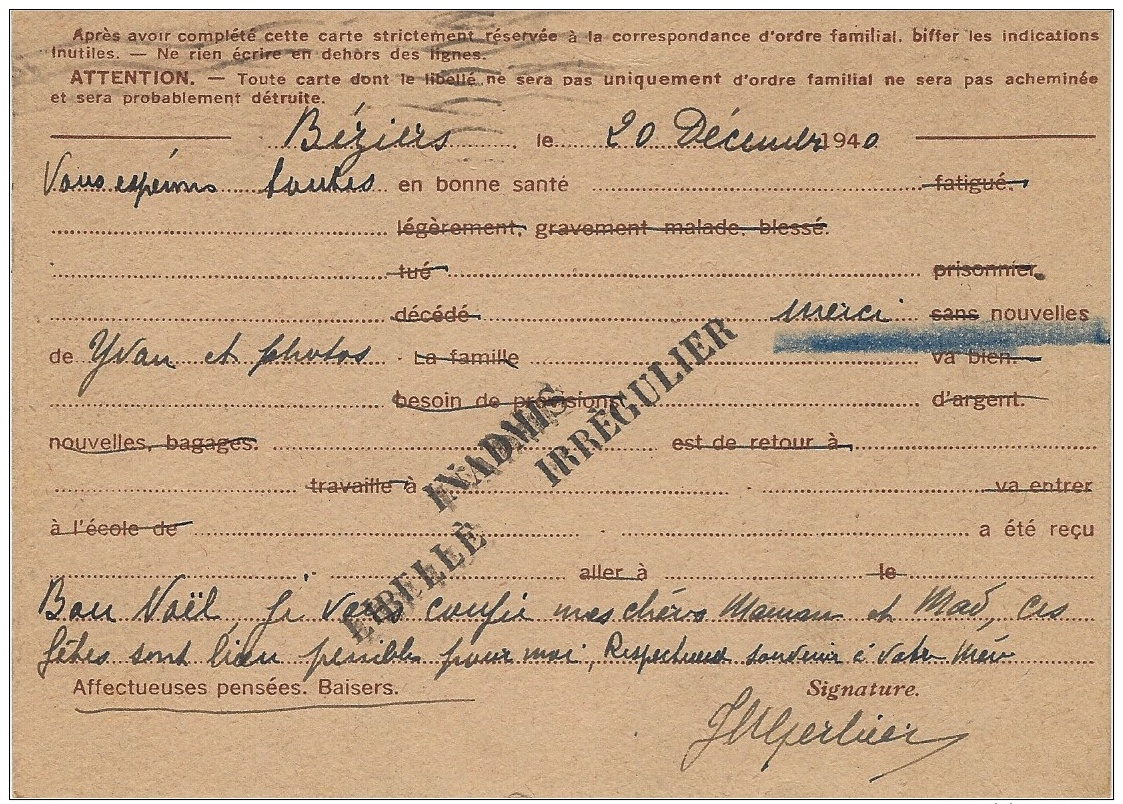 Après avoir complété cette carte strictement réservée à la correspondance d'ordre familial, biffer les indications
inutiles. — Ne rien écrire en dehors des lignes.
ATTENTION. — Toute carte dont le libellé ne sera pas uniquement d'ordre familial ne sera pas acheminée
et sera probablement détruite.
Béziers, le 20 Décembre 1940
Vous espérons toutes en bonne santé fatigué.
légèrement, gravement malade, blessé.
tué prisonnier.
décédé merci sans nouvelles
de Yvan et photos. La famille va bien.
besoin de provisions d'argent.
nouvelles, bagages. est de retour à
travaille à va entrer
à l'école de a été reçu
aller à le
Bon Noël, je vous confie mes chérs Maman et Mad, ces
fêtes sont bien penibles pour moi, Respectueux souvenir à votre Mère
Affectueuses pensées. Baisers. Signature.
INADMIS
LIBELLÉ IRRÉGULIER